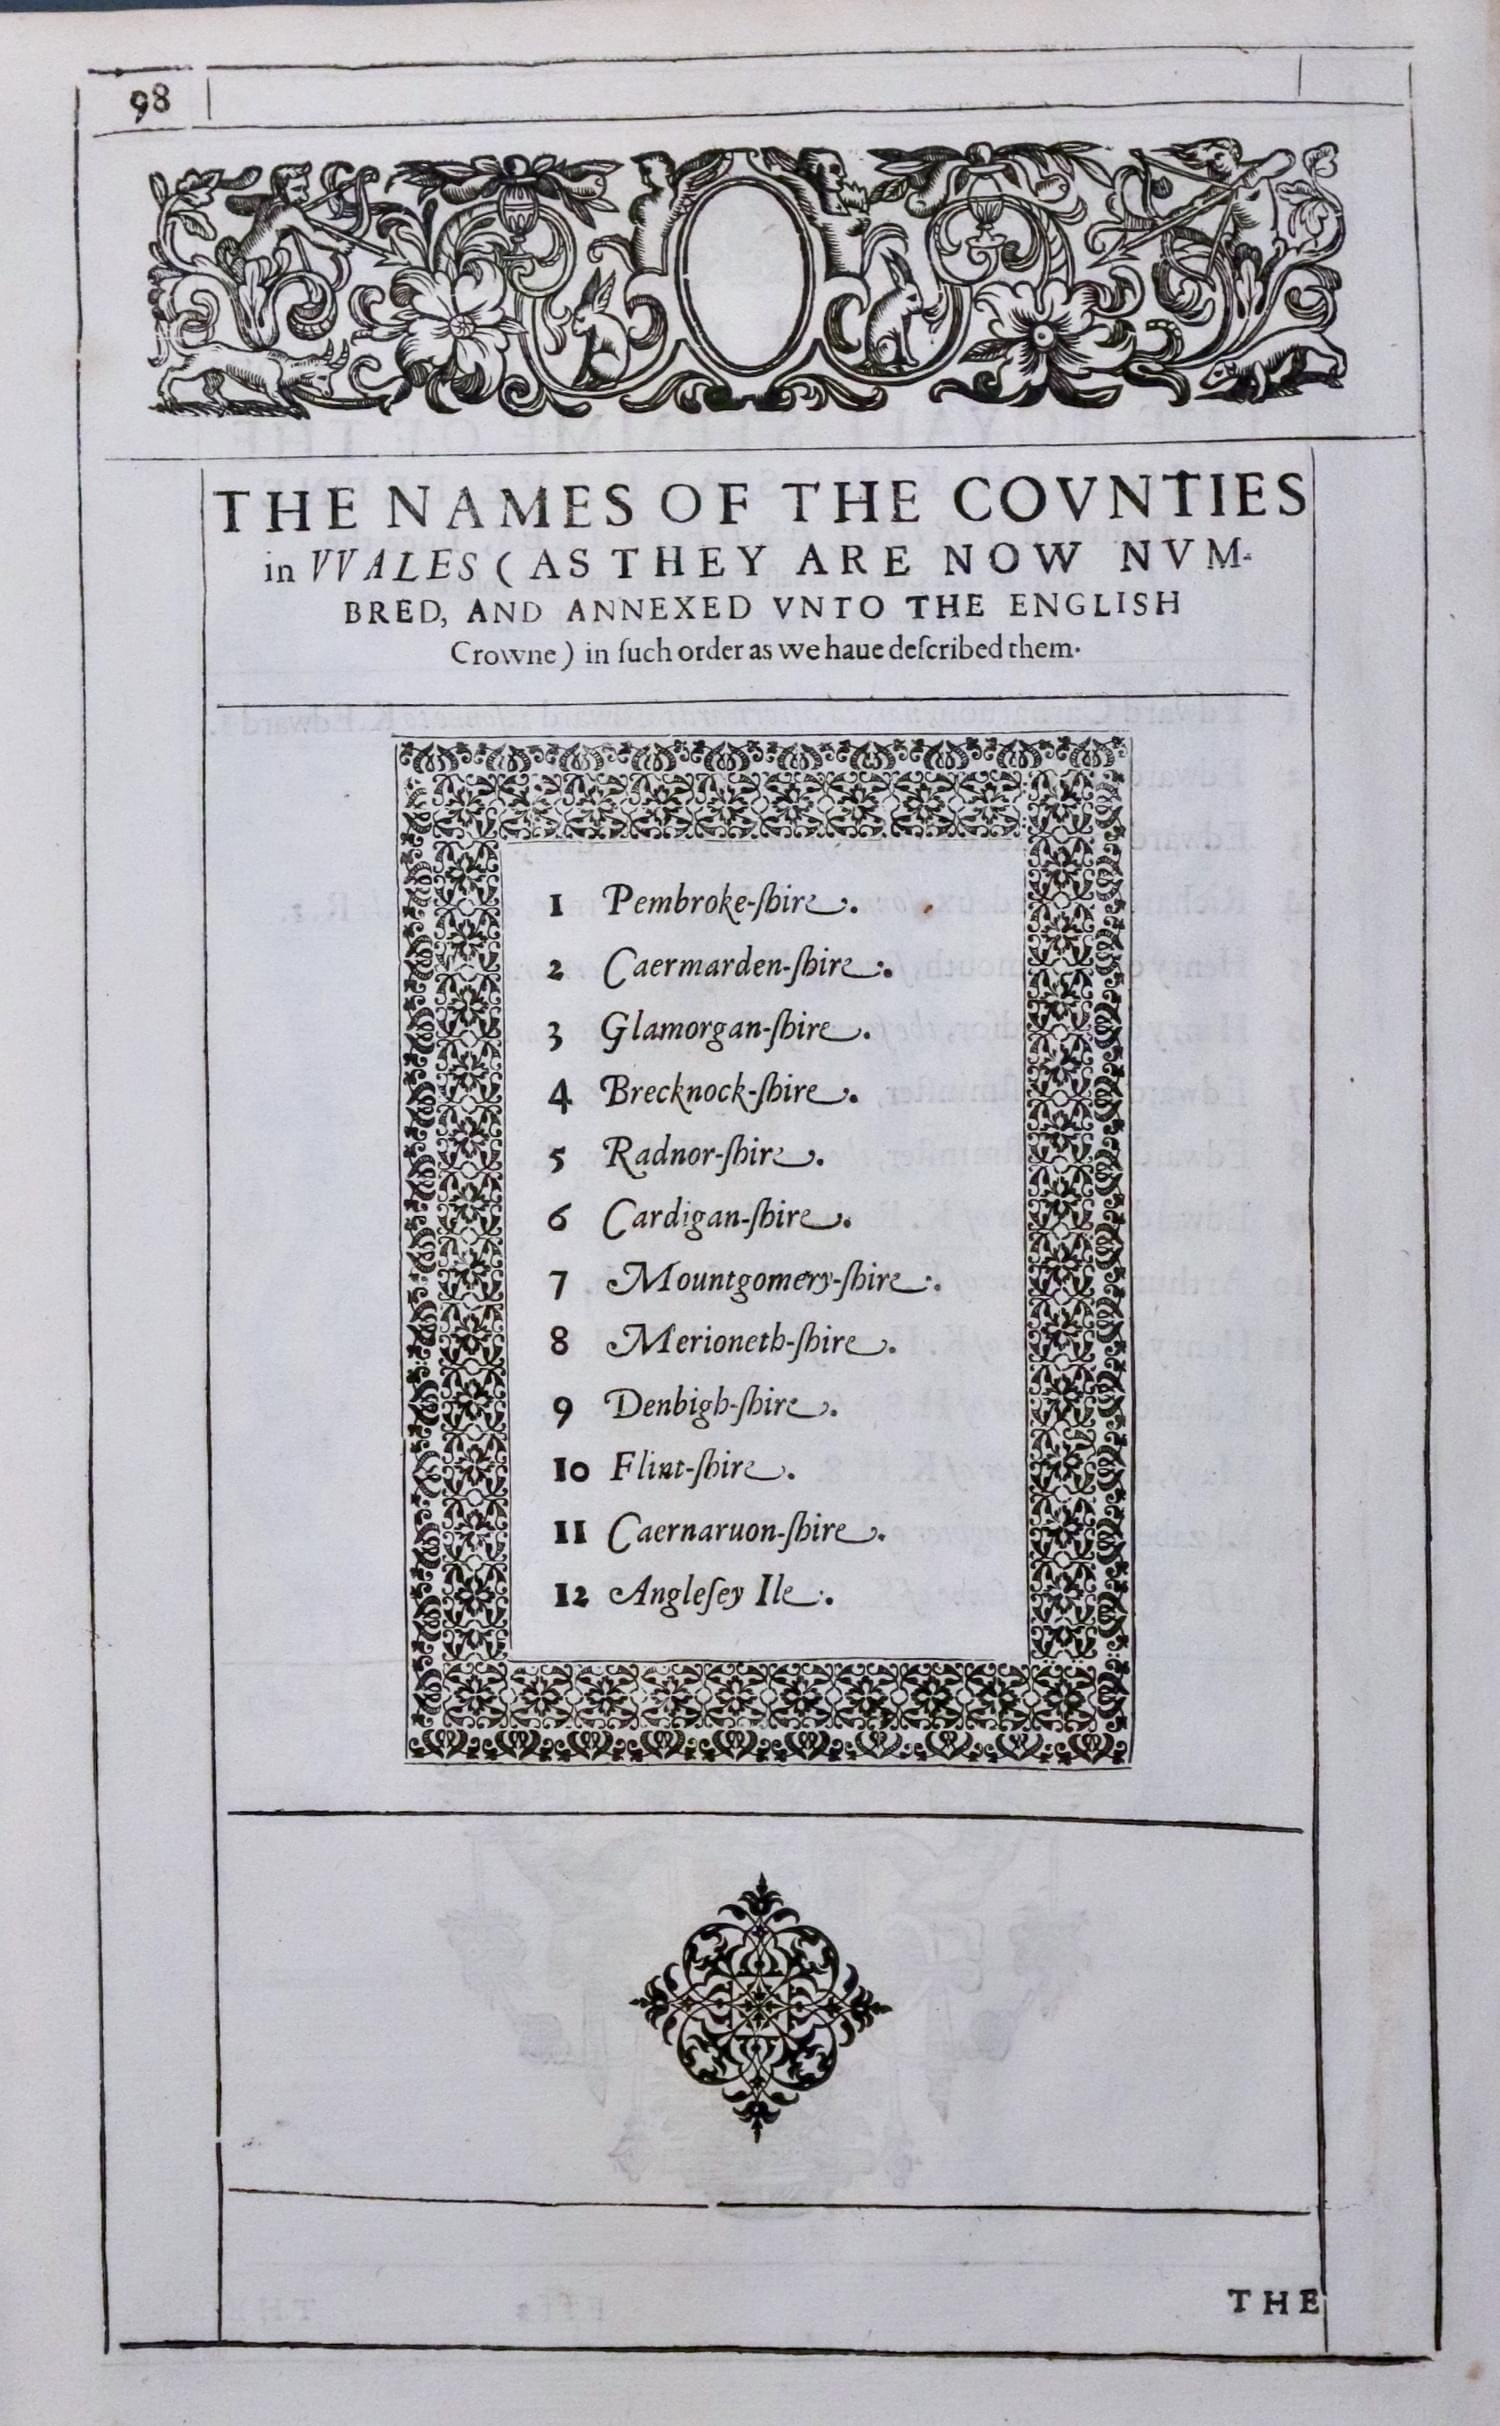 98
THE NAMES OF THE COVNTIES
in VVALES (AS THEY ARE NOW NVM-
BRED, AND ANNEXED VNTO THE ENGLISH
Crowne) in ſuch order as we haue deſcribed them.
1 Pembroke-ſhire.
2 Caermarden-ſhire.
3 Glamorgan-ſhire.
4 Brecknock-ſhire.
5 Radnor-ſhire.
6 Cardigan-ſhire.
7 Mountgomery-ſhire.
8 Merioneth-ſhire.
9 Denbigh-ſhire.
10 Flint-ſhire.
11 Caernaruon-ſhire.
12 Angleſey Ile.
THE